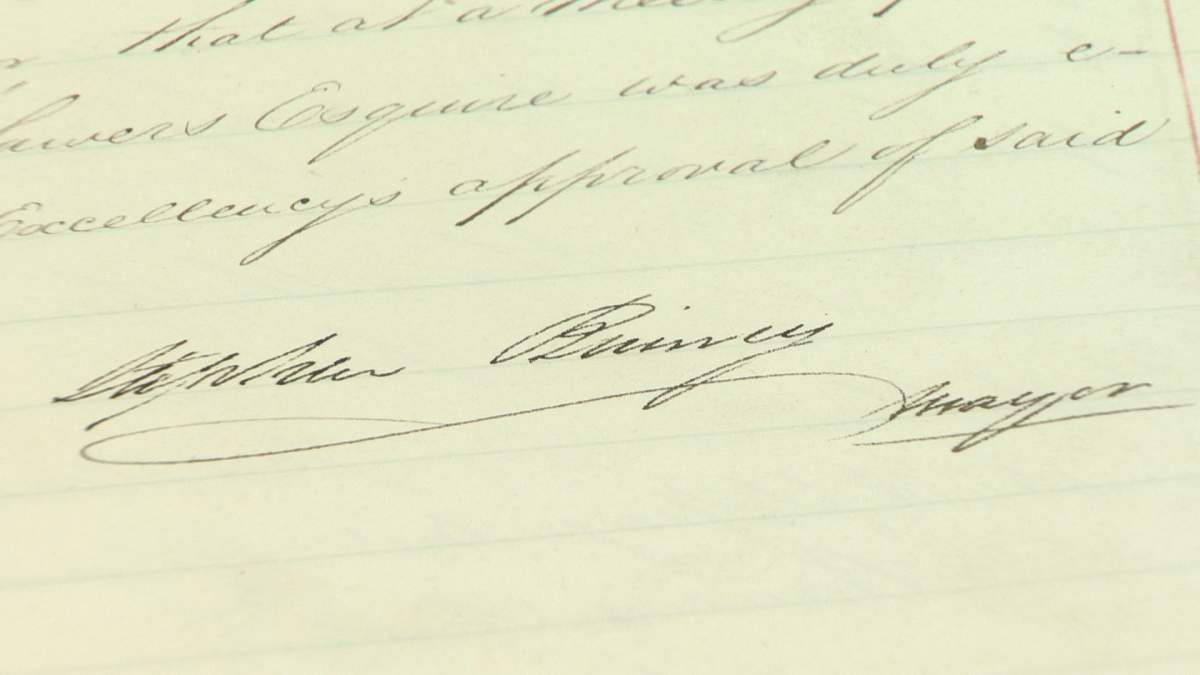 that at a
Esquire was duly e-
Excellency's approval of said
Stephen Quinney
Mayor